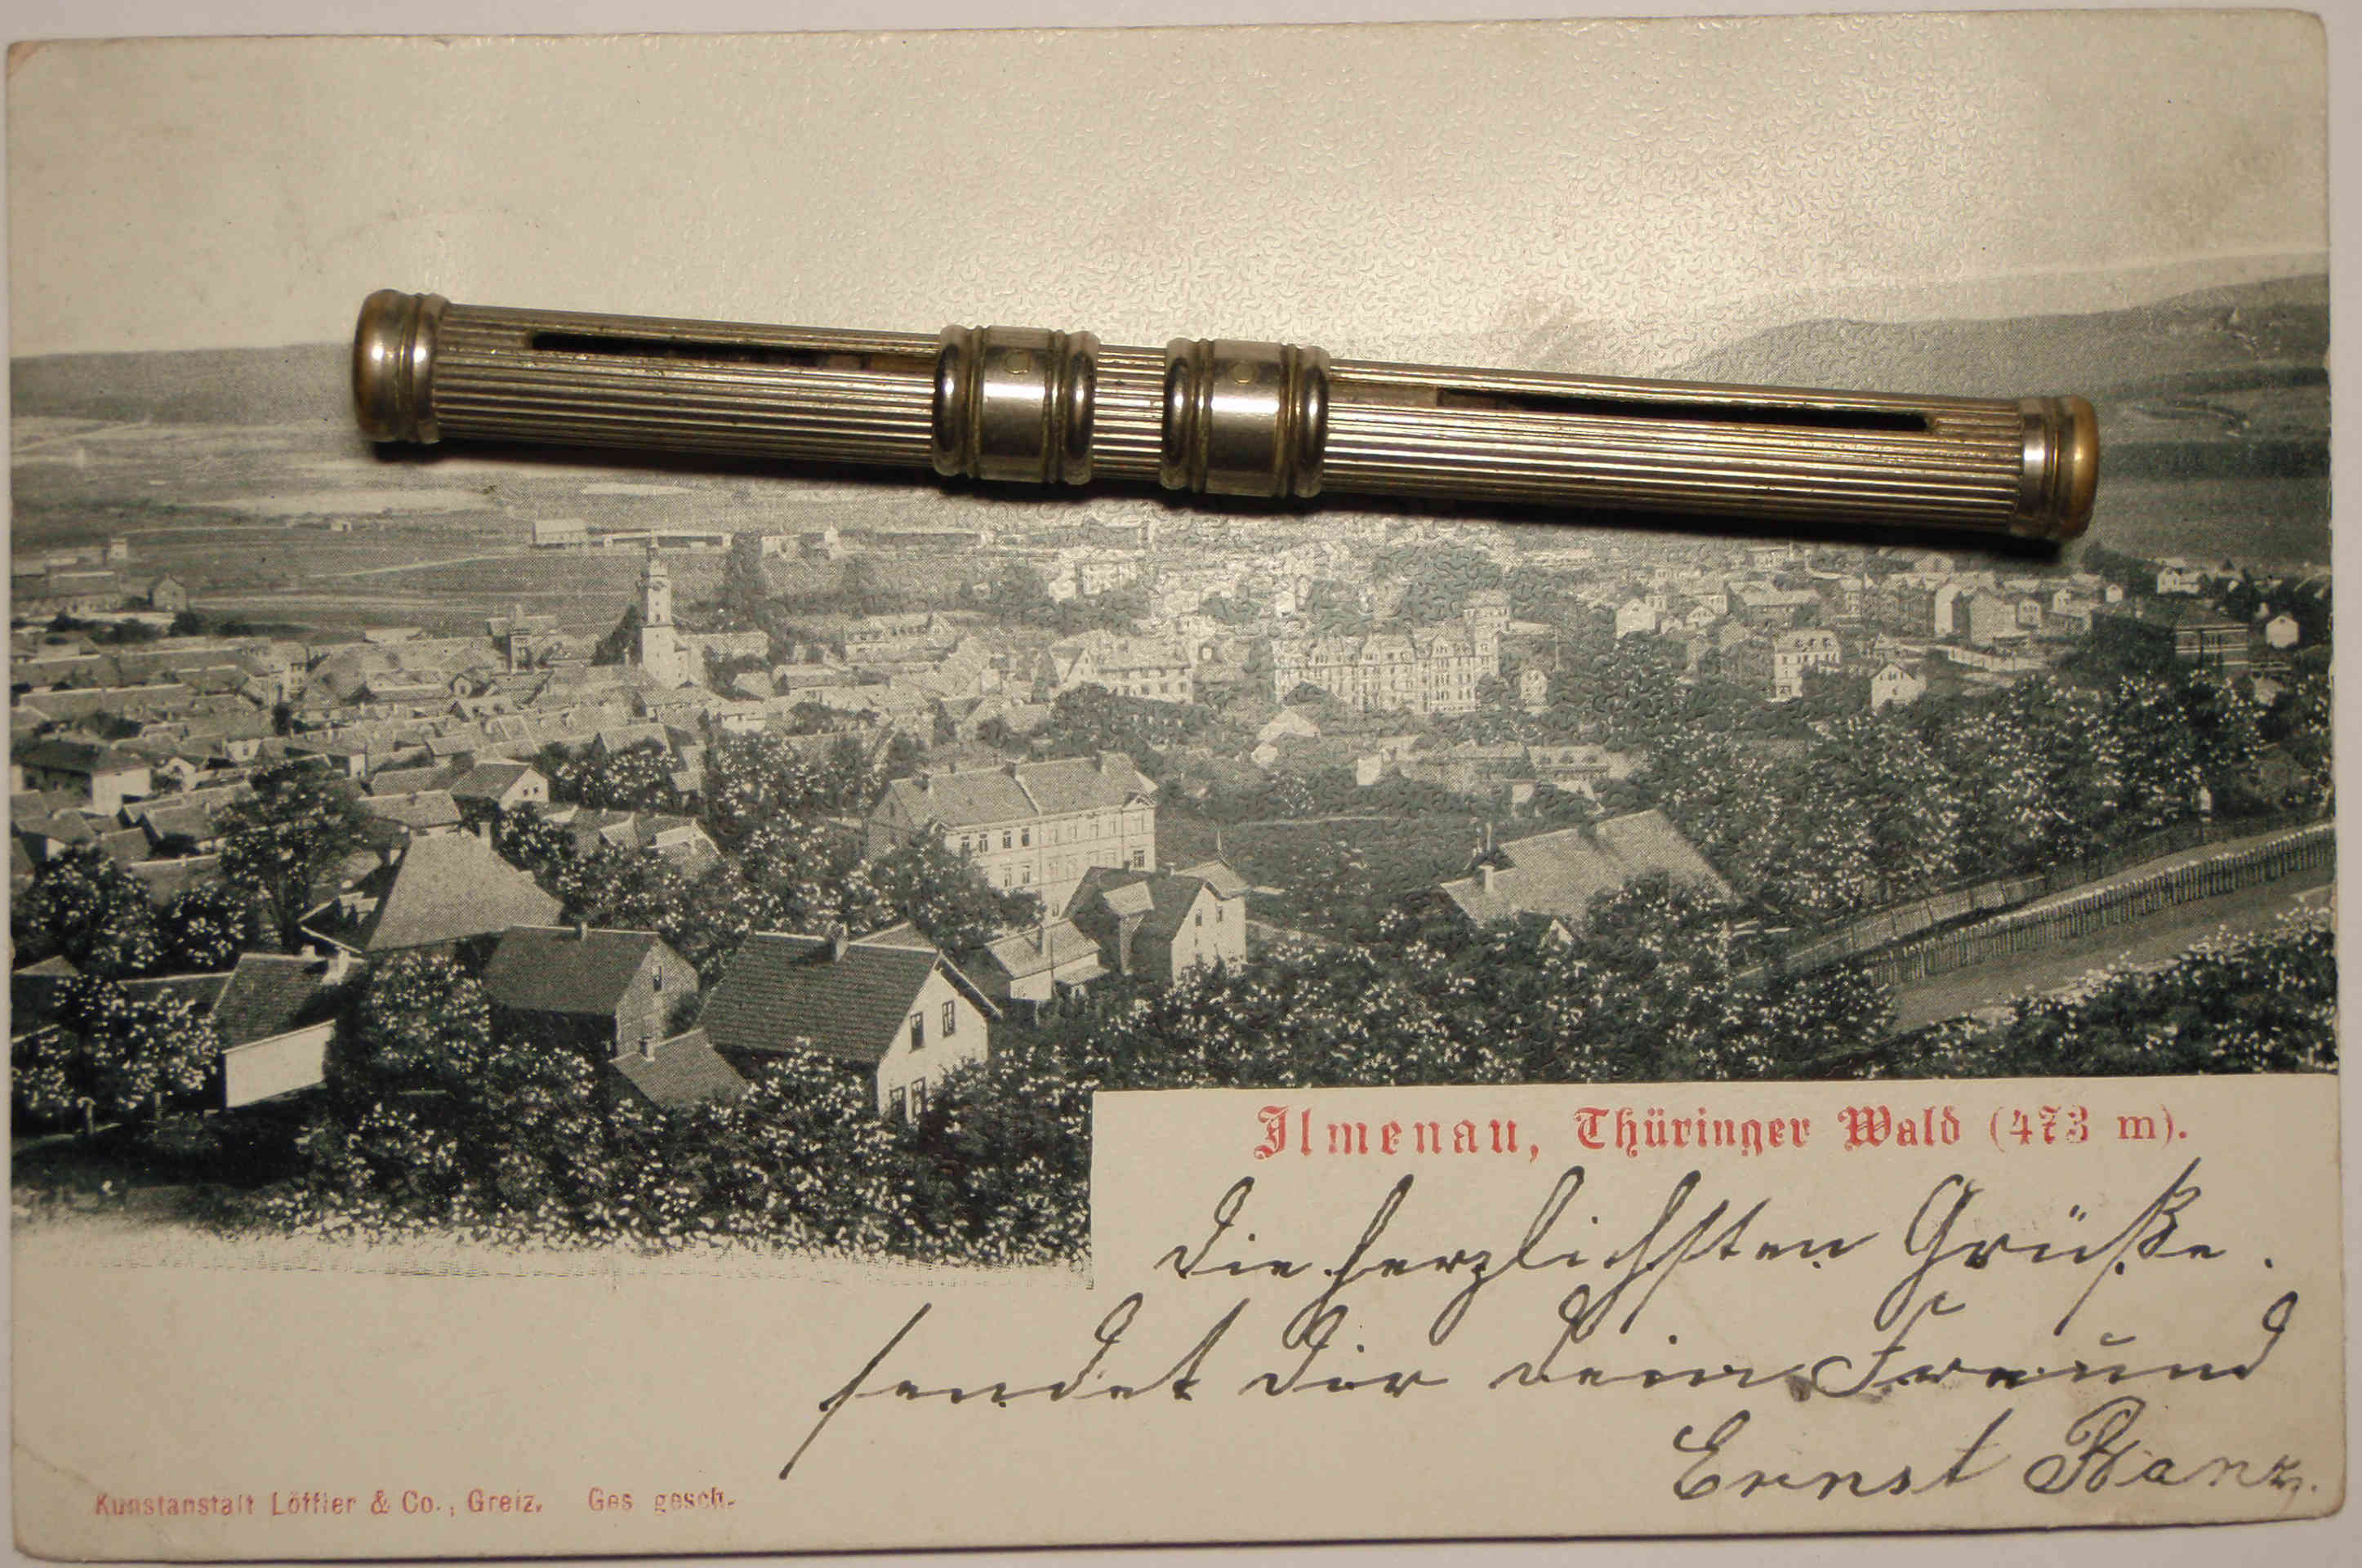 Ilmenau, Thüringer Wald (473 m).
Die herzlichsten Grüße.
sendet Dir Dein Freund
Ernst
Kunstanstalt Löffler & Co., Greiz. Ges gesch.